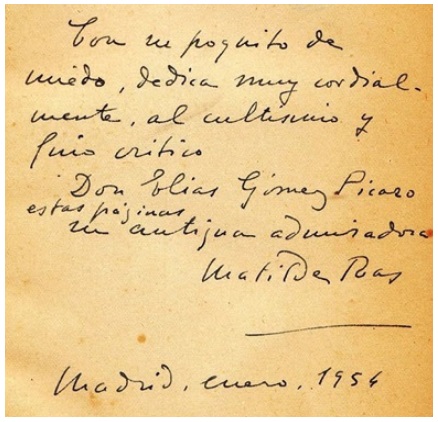 Con un poquito de
miedo, dedica muy cordial-
mente, al cultísimo y
fino crítico
Don Elías Gómez Picazo
estas páginas
su antigua admiradora
Matilde Ras
Madrid, enero, 1954